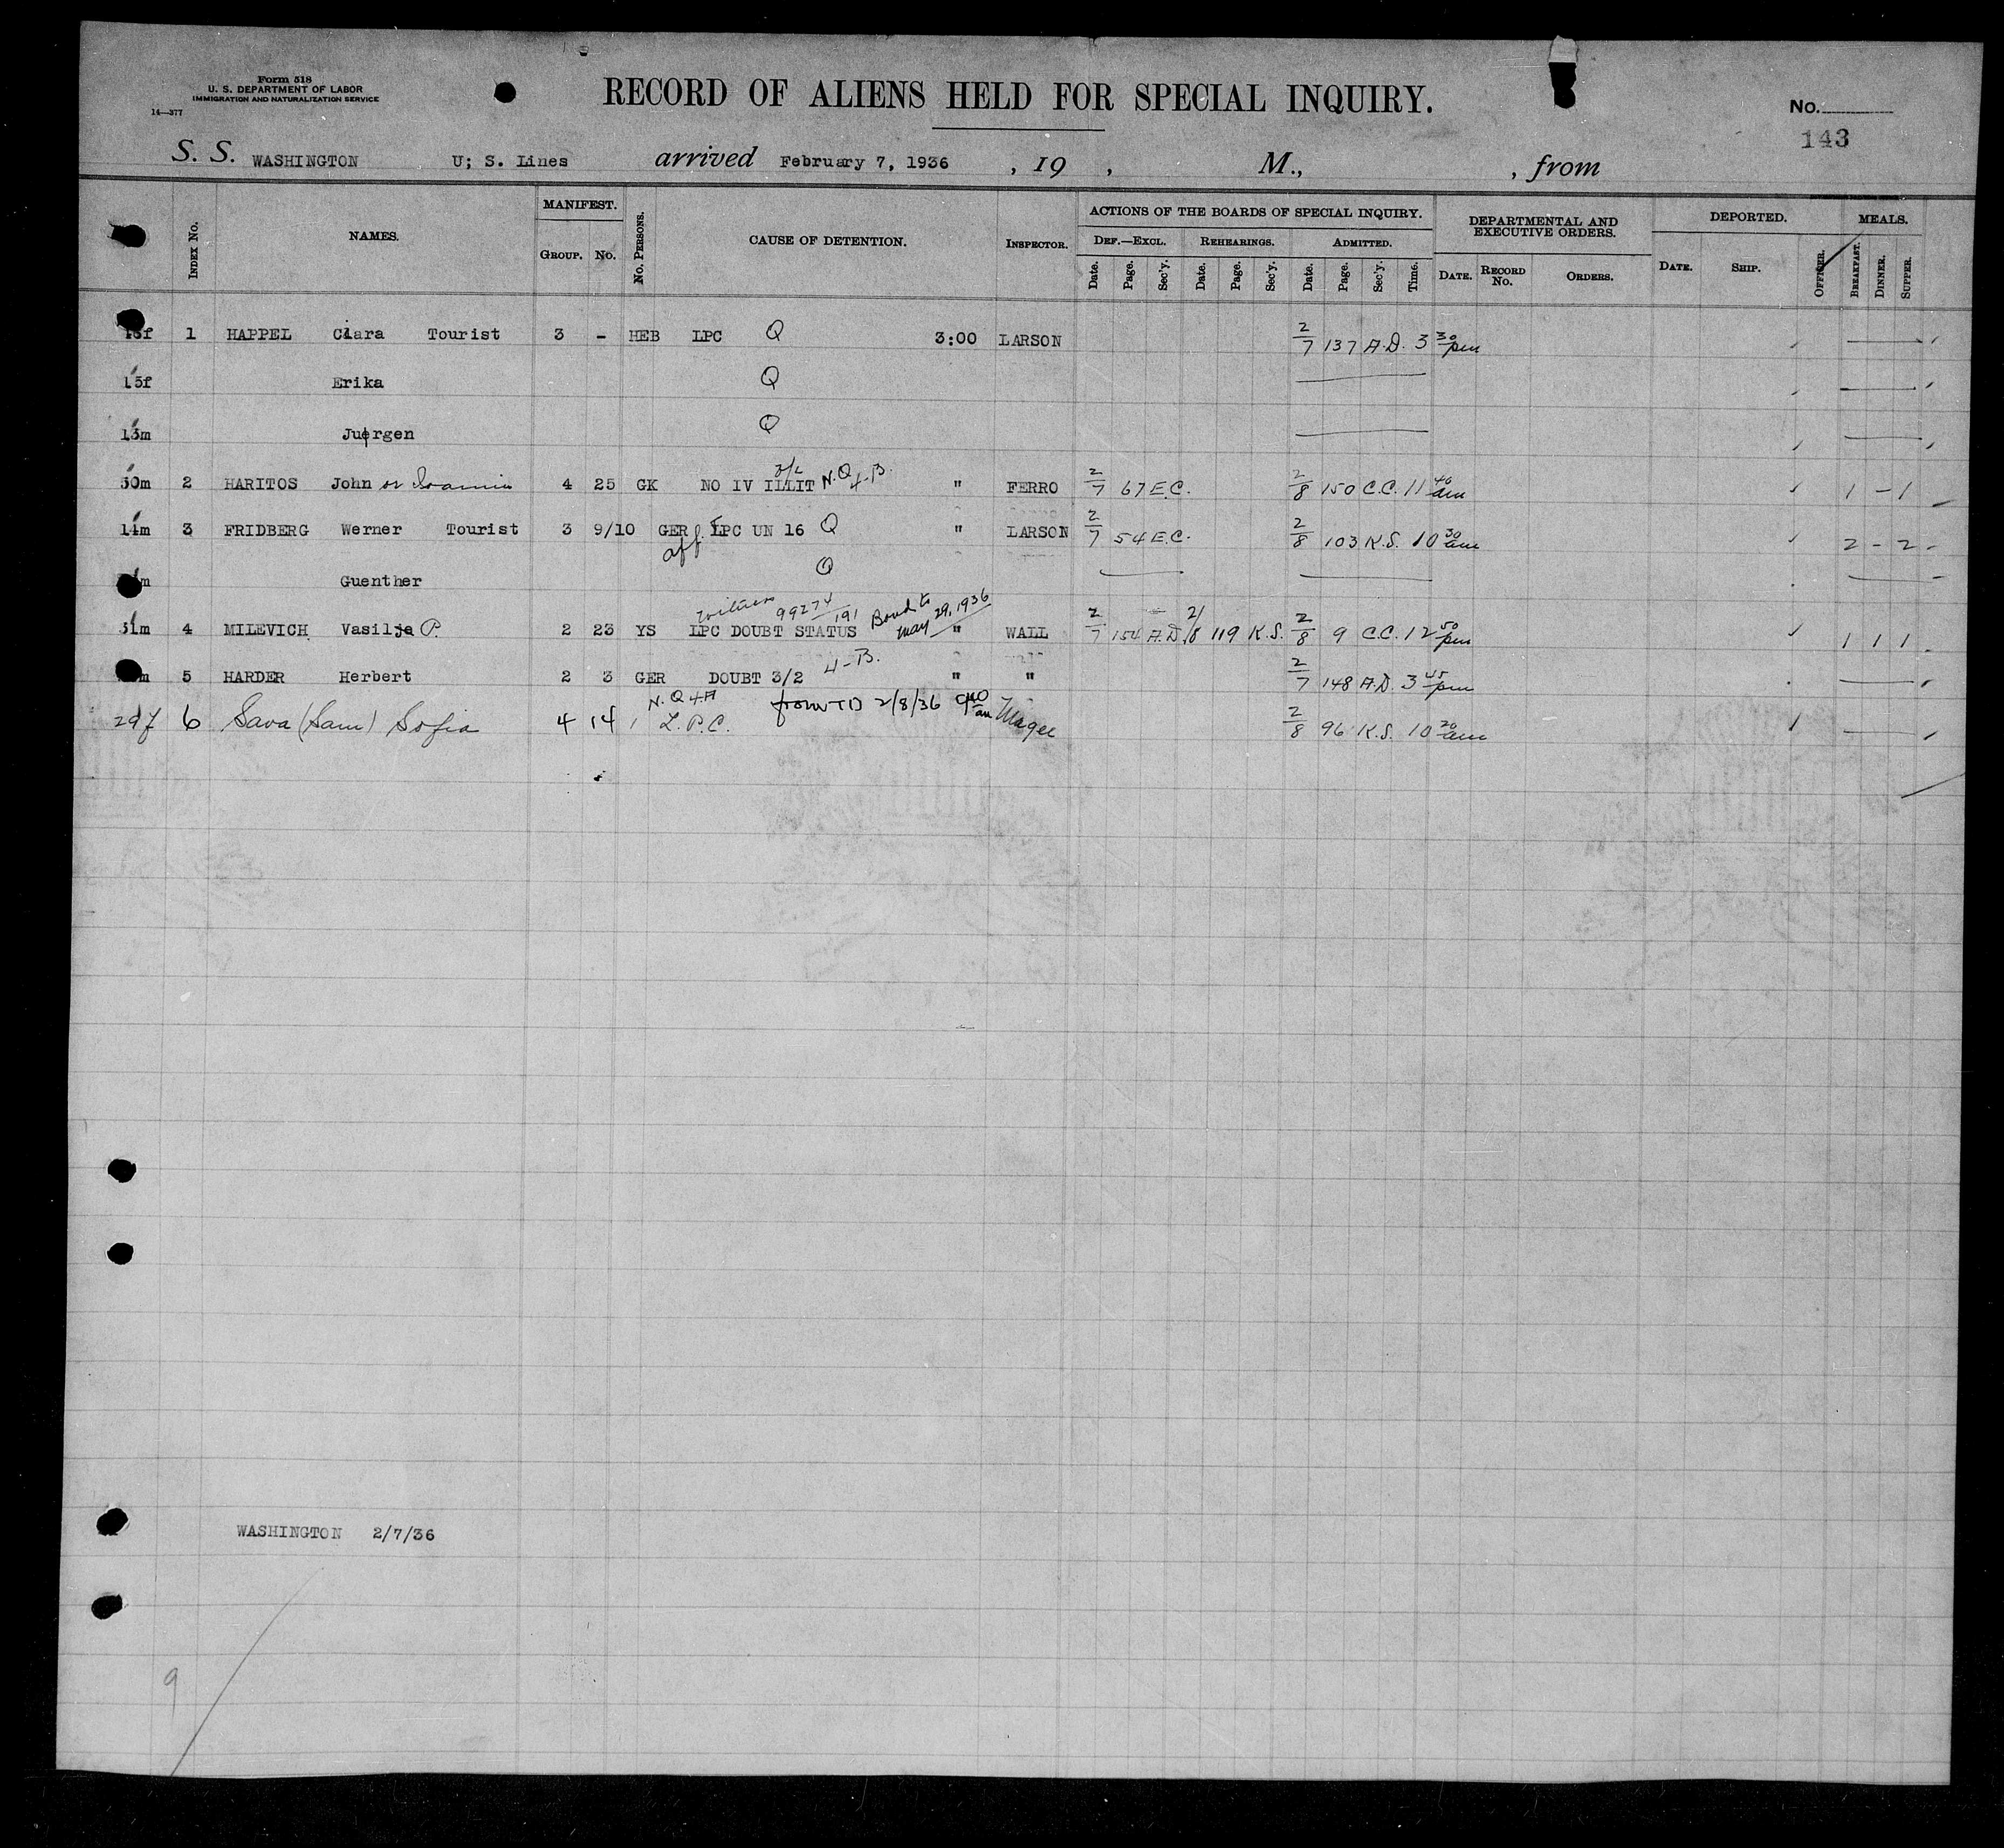 Form 518
U. S. DEPARTMENT OF LABOR
IMMIGRATION AND NATURALIZATION SERVICE
14—377
RECORD OF ALIENS HELD FOR SPECIAL INQUIRY.
No.
143
S. S. WASHINGTON U; S. Lines arrived February 7, 1936 , 19 , M., , from
INDEX NO. NAMES. MANIFEST. GROUP. NO. NO. PERSONS. CAUSE OF DETENTION. INSPECTOR. ACTIONS OF THE BOARDS OF SPECIAL INQUIRY. DEPARTMENTAL AND EXECUTIVE ORDERS. DEPORTED. MEALS.
DEF.—EXCL. REHEARINGS. ADMITTED.
Date. Page. Sec'y. Date. Page. Sec'y. Date. Page. Sec'y. Time. DATE. RECORD NO. ORDERS. DATE. SHIP. OFFICER. BREAKFAST. DINNER. SUPPER.
1 HAPPEL Clara Tourist 3 - HEB LPC Q 3:00 LARSON 2/7 137 A.D. 3 30 pm
15f Erika Q
13m Juergen Q
50m 2 HARITOS John or Ioannis 4 25 GK NO IV ILLIT 3/2 N.Q 4-B. " FERRO 2/7 67 E.C. 2/8 150 C.C. 11 40 am 1 - 1
14m 3 FRIDBERG Werner Tourist 3 9/10 GER aff LPC UN 16 Q " LARSON 2/7 54 E.C. 2/8 103 K.S. 10 30 am 2 - 2
m Guenther Q
witness 99274/191 Bond to May 29, 1936
31m 4 MILEVICH Vasilje P. 2 23 YS LPC DOUBT STATUS " WALL 2/7 154 A.D. 2/8 119 K.S. 2/8 9 C.C. 12 50 pm 1 1 1
m 5 HARDER Herbert 2 3 GER DOUBT 3/2 4-B. " " 2/7 148 A.D. 3 45 pm
29f 6 Sava (Sam) Sofia 4 14 1 N.Q 4A L.P.C. from TD 2/8/36 9 40 am Magee 2/8 96 K.S. 10 20 am
WASHINGTON 2/7/36
9